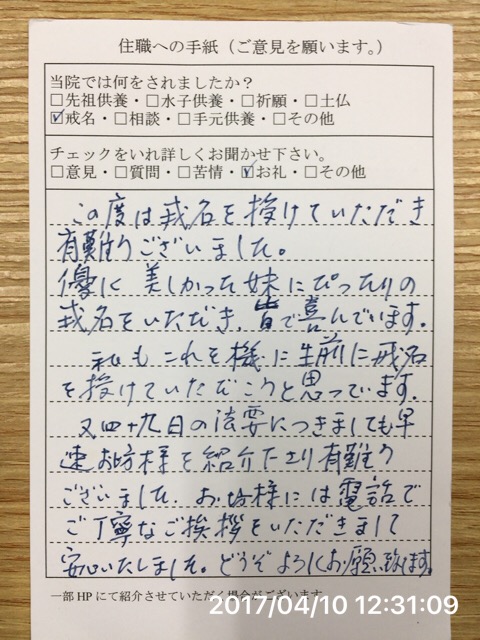 住職への手紙（ご意見を願います。）
当院では何をされましたか？
□先祖供養・□水子供養・□祈願・□土仏
☑戒名・□相談・□手元供養・□その他
チェックをいれ詳しくお聞かせ下さい。
□意見・□質問・□苦情・☑お礼・□その他
この度は戒名を授けていただき
有難うございました。
優しく美しかった妹にぴったりの
戒名をいただき、皆で喜んでいます。
私もこれを機に生前に戒名
を授けていただこうと思っています。
又四十九日の法要につきましても早
速お坊様を紹介下さり有難う
ございました。お坊様には電話で
ご丁寧なご挨拶をいただきまして
安心いたしました。どうぞよろしくお願い致します。
一部HPにて紹介させていただく場合がございます。
2017/04/10 12:31:09